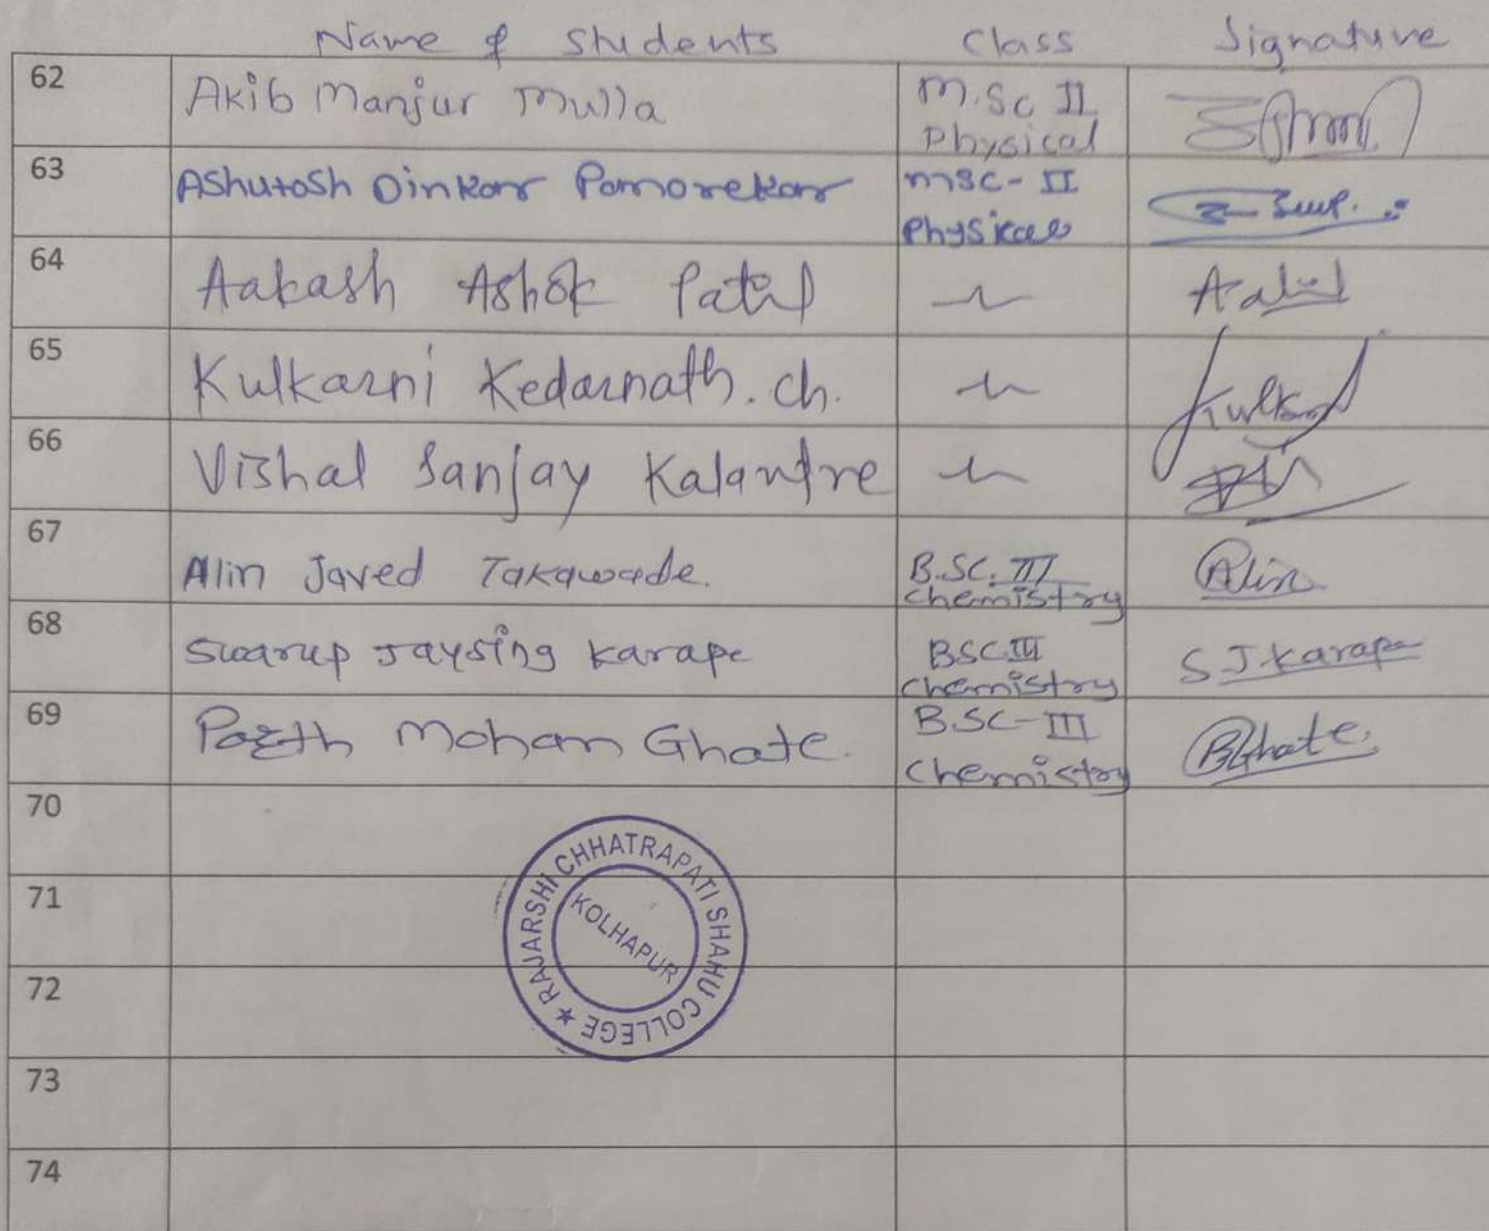 Name of Students Class Signature
62 Akib Manjur Mulla M.Sc II
Physical
63 Ashutosh Dinkar Pamorekar MSC-II
Physical
64 Aakash Ashok Patil
65 Kulkarni Kedarnath. ch.
66 Vishal Sanjay Kalantre
67 Alin Javed Takawade. B.SC. III
chemistry Alin
68 Swarup Jaysing Karape BSC.III
chemistry S J Karape
69 Parth Mohan Ghate. B.SC-III
chemistry PGhate.
70
71
72
73
74
RAJARSHI CHHATRAPATI SHAHU COLLEGE ★
KOLHAPUR